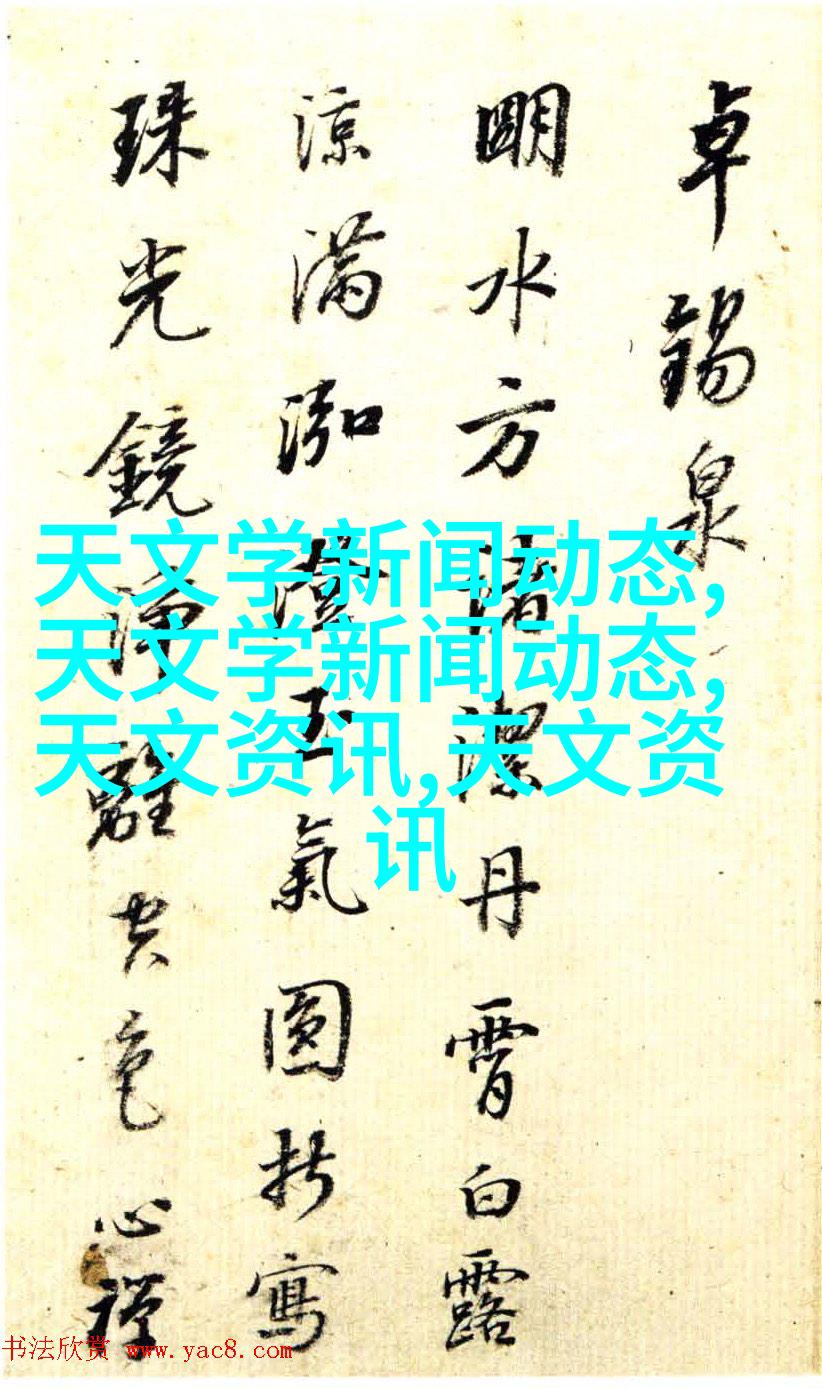 卓錫泉
明水方諸潔丹霄白露
涼滿泓澄玉氣圓折寫
珠光鏡淨離空色心禪
天文学新闻动态,
天文学新闻动态,
天文资讯,天文资
讯
书法欣赏 www.yac8.com